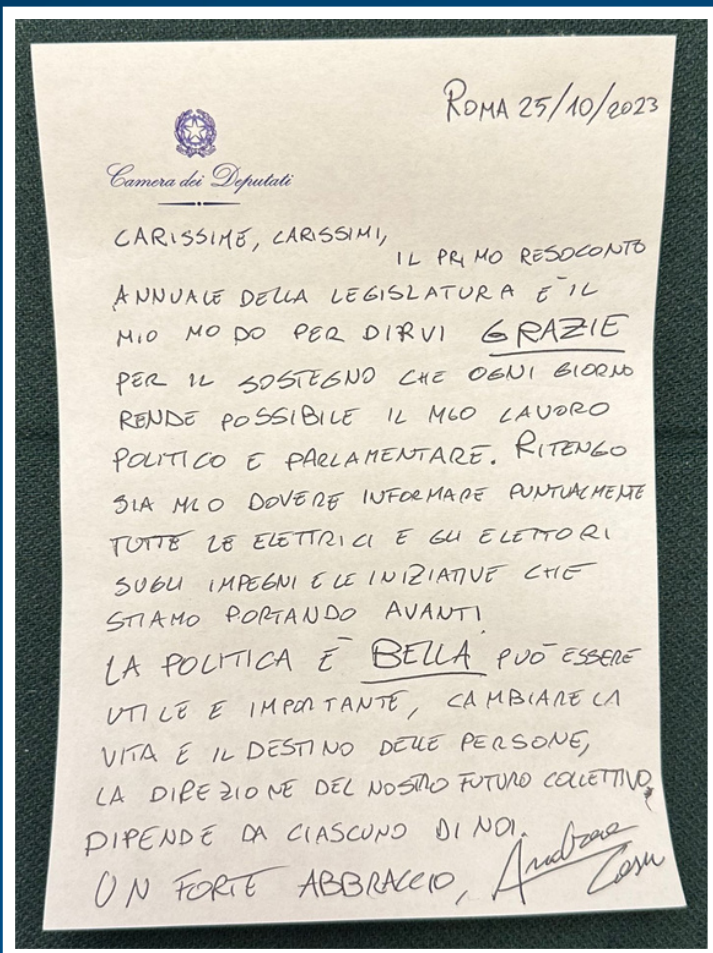 ROMA 25/10/2023
Camera dei Deputati
CARISSIME, CARISSIMI,
IL PRIMO RESOCONTO
ANNUALE DELLA LEGISLATURA È IL
MIO MODO PER DIRVI GRAZIE
PER IL SOSTEGNO CHE OGNI GIORNO
RENDE POSSIBILE IL MIO LAVORO
POLITICO E PARLAMENTARE. RITENGO
SIA MIO DOVERE INFORMARE PUNTUALMENTE
TUTTE LE ELETTRICI E GLI ELETTORI
SUGLI IMPEGNI E LE INIZIATIVE CHE
STIAMO PORTANDO AVANTI.
LA POLITICA È BELLA, PUÒ ESSERE
UTILE E IMPORTANTE, CAMBIARE LA
VITA E IL DESTINO DELLE PERSONE,
LA DIREZIONE DEL NOSTRO FUTURO COLLETTIVO,
DIPENDE DA CIASCUNO DI NOI.
UN FORTE ABBRACCIO, Andrea
Casu